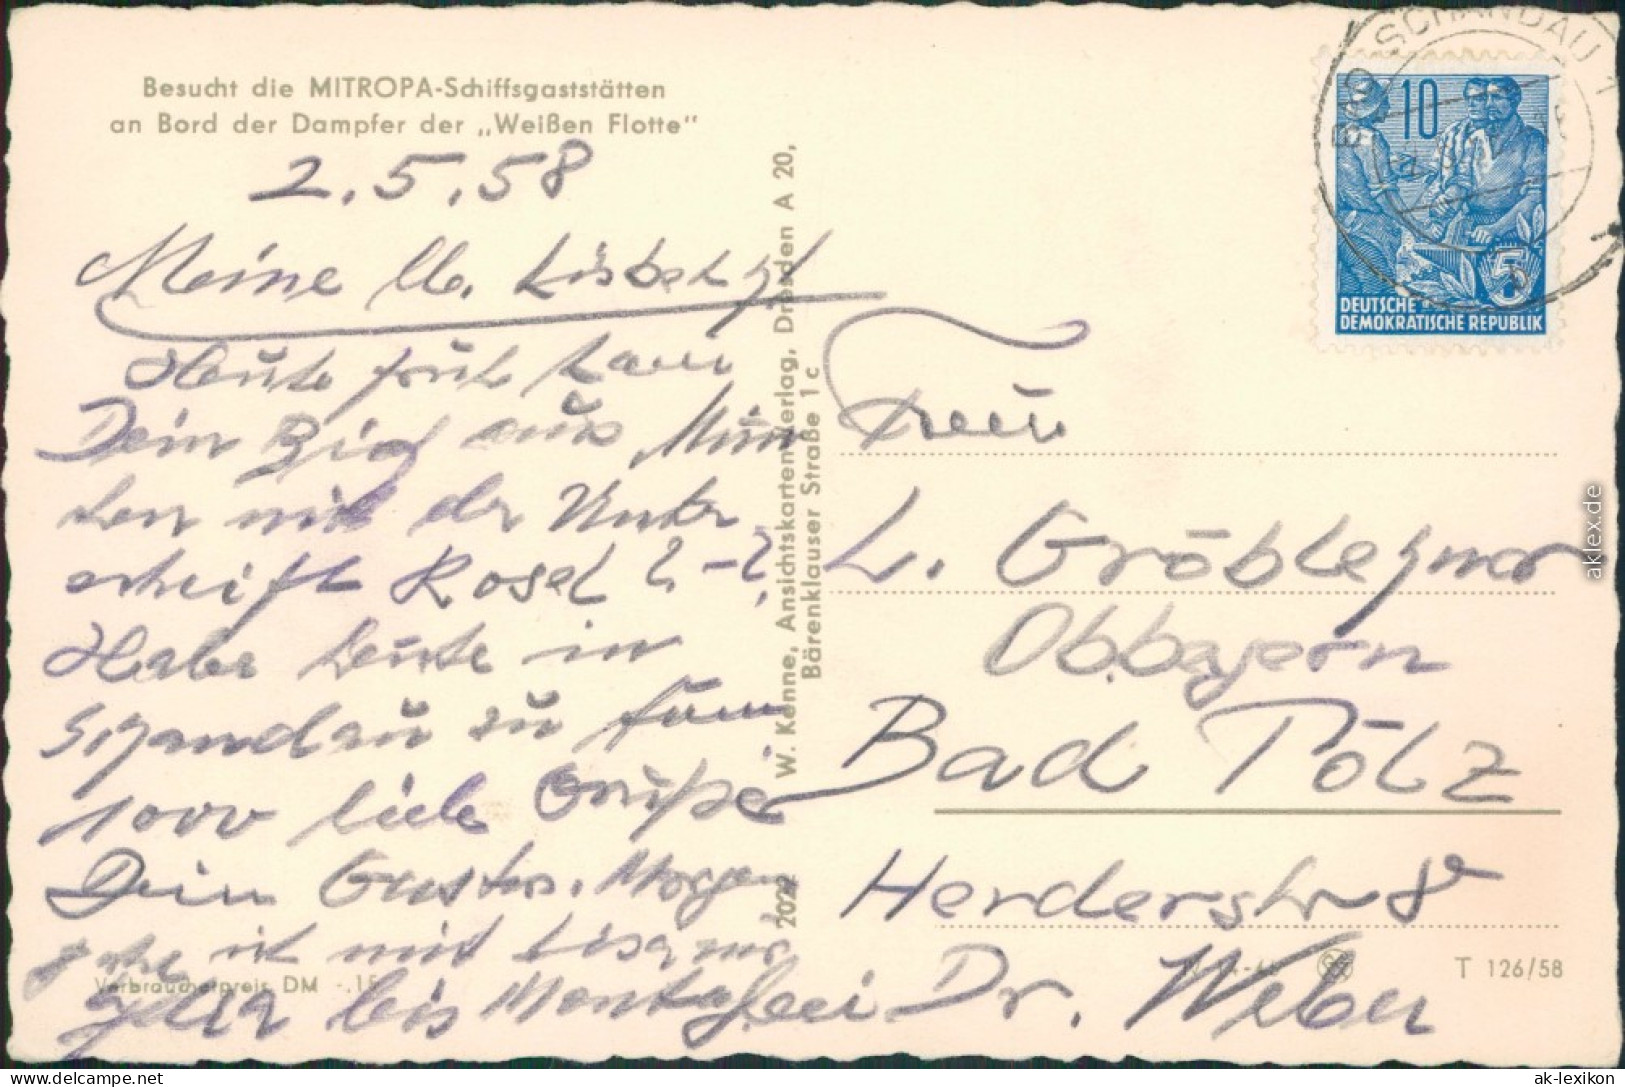 Besucht die MITROPA-Schiffsgaststätten
an Bord der Dampfer der „Weißen Flotte"
2.5.58
Meine lb. Lisbeth!
Heute früh kam
Dein Brief aus Mün
chen mit der Unter
schrift Rosel ?-?
Habe heute in
Schandau zu tun
1000 liebe Grüße
Dein Gustav. Morgen
gehe ich mit
bis Montag bei
Verbraucherpreis DM -.15
2022 W. Kenne, Ansichtskartenverlag, Dresden A 20,
Bärenklauser Straße 1 c
BAD SCHANDAU 1
10
5
DEUTSCHE
DEMOKRATISCHE REPUBLIK
Frau
L. Gröblehner
Obbayern
Bad Tölz
Herderstr 8
Dr. Weber
T 126/58
aklex.de
delcampe.net
ak-lexikon